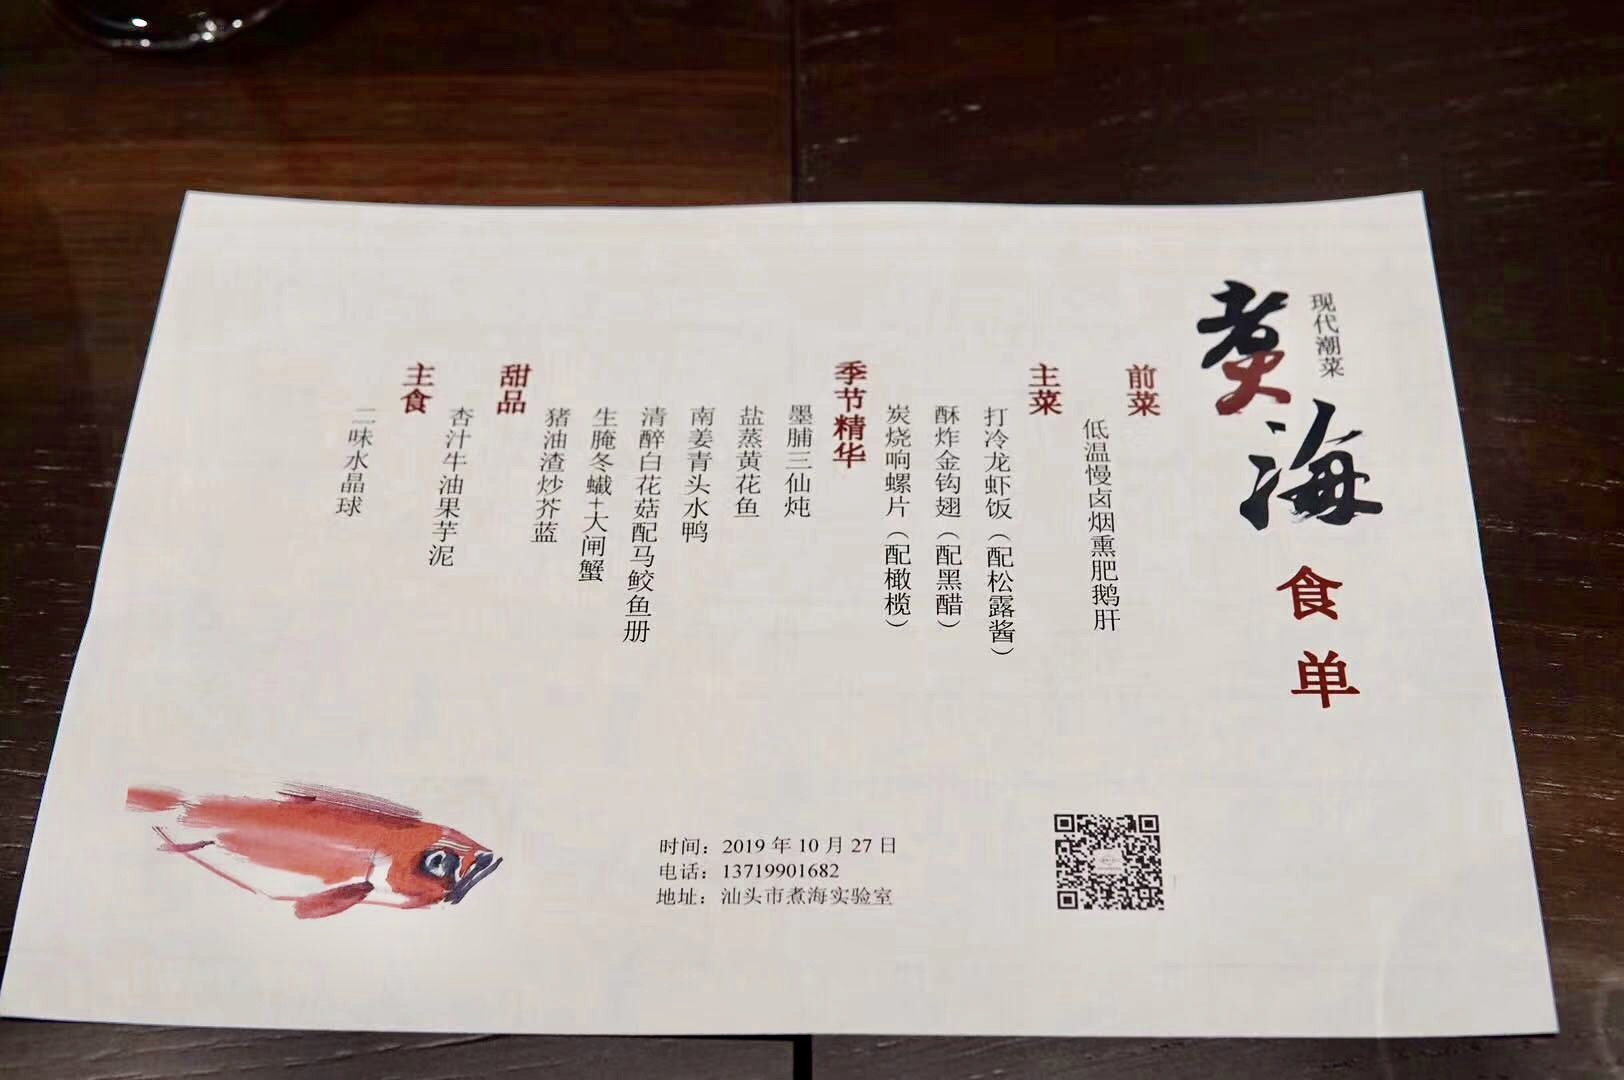 现代潮菜
煮海
食单
前菜
低温慢卤烟熏肥鹅肝
主菜
打冷龙虾饭（配松露酱）
酥炸金钩翅（配黑醋）
炭烧响螺片（配橄榄）
季节精华
墨脯三仙炖
盐蒸黄花鱼
南姜青头水鸭
清醉白花菇配马鲛鱼册
生腌冬蠘+大闸蟹
猪油渣炒芥蓝
甜品
杏汁牛油果芋泥
主食
二味水晶球
时间：2019 年 10 月 27 日
电话：13719901682
地址：汕头市煮海实验室